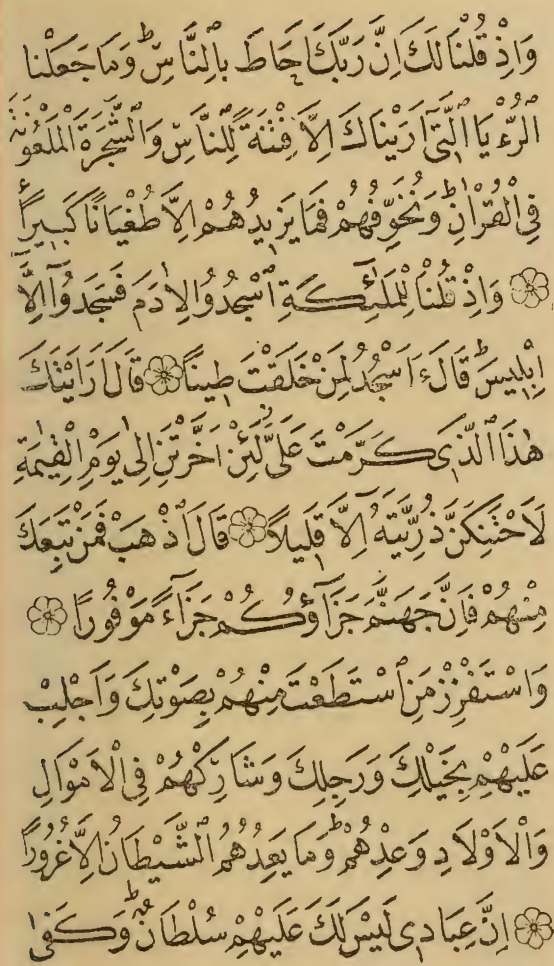 وَاِذْ قُلْنَا لَكَ اِنَّ رَبَّكَ اَحَاطَ بِالنَّاسِۜ وَمَا جَعَلْنَا
الرُّءْيَا الَّتٖٓى اَرَيْنَاكَ اِلَّا فِتْنَةً لِلنَّاسِ وَالشَّجَرَةَ الْمَلْعُونَةَ
فِى الْقُرْاٰنِۜ وَنُخَوِّفُهُمْ فَمَا يَزٖيدُهُمْ اِلَّا طُغْيَانًا كَبٖيرًا
۝ وَاِذْ قُلْنَا لِلْمَلٰٓئِكَةِ اسْجُدُوا لِاٰدَمَ فَسَجَدُٓوا اِلَّٓا
اِبْلٖيسَۜ قَالَ ءَاَسْجُدُ لِمَنْ خَلَقْتَ طٖينًا ۝ قَالَ اَرَاَيْتَكَ
هٰذَا الَّذٖى كَرَّمْتَ عَلَىَّ لَئِنْ اَخَّرْتَنِ اِلٰى يَوْمِ الْقِيٰمَةِ
لَاَحْتَنِكَنَّ ذُرِّيَّتَهُٓ اِلَّا قَلٖيلًا ۝ قَالَ اذْهَبْ فَمَنْ تَبِعَكَ
مِنْهُمْ فَاِنَّ جَهَنَّمَ جَزَٓاؤُكُمْ جَزَٓاءً مَوْفُورًا ۝
وَاسْتَفْزِزْ مَنِ اسْتَطَعْتَ مِنْهُمْ بِصَوْتِكَ وَاَجْلِبْ
عَلَيْهِمْ بِخَيْلِكَ وَرَجِلِكَ وَشَارِكْهُمْ فِى الْاَمْوَالِ
وَالْاَوْلَادِ وَعِدْهُمْۜ وَمَا يَعِدُهُمُ الشَّيْطَانُ اِلَّا غُرُورًا
۝ اِنَّ عِبَادٖى لَيْسَ لَكَ عَلَيْهِمْ سُلْطَانٌۜ وَكَفٰى